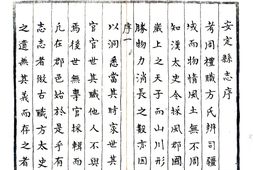 安定縣志序
考周禮職方氏辨司疆
域而物情風土無不周
知漢太史令採風郡國
嚴上之天子而山川形
勝物力消長之數亦因
序一
以洞悉當其時家世其
官官世其職他人不與
焉後世無專官採輯而
凡在郡邑始於是乎有
志志者倣古職方太史
之遺無其義而存之者